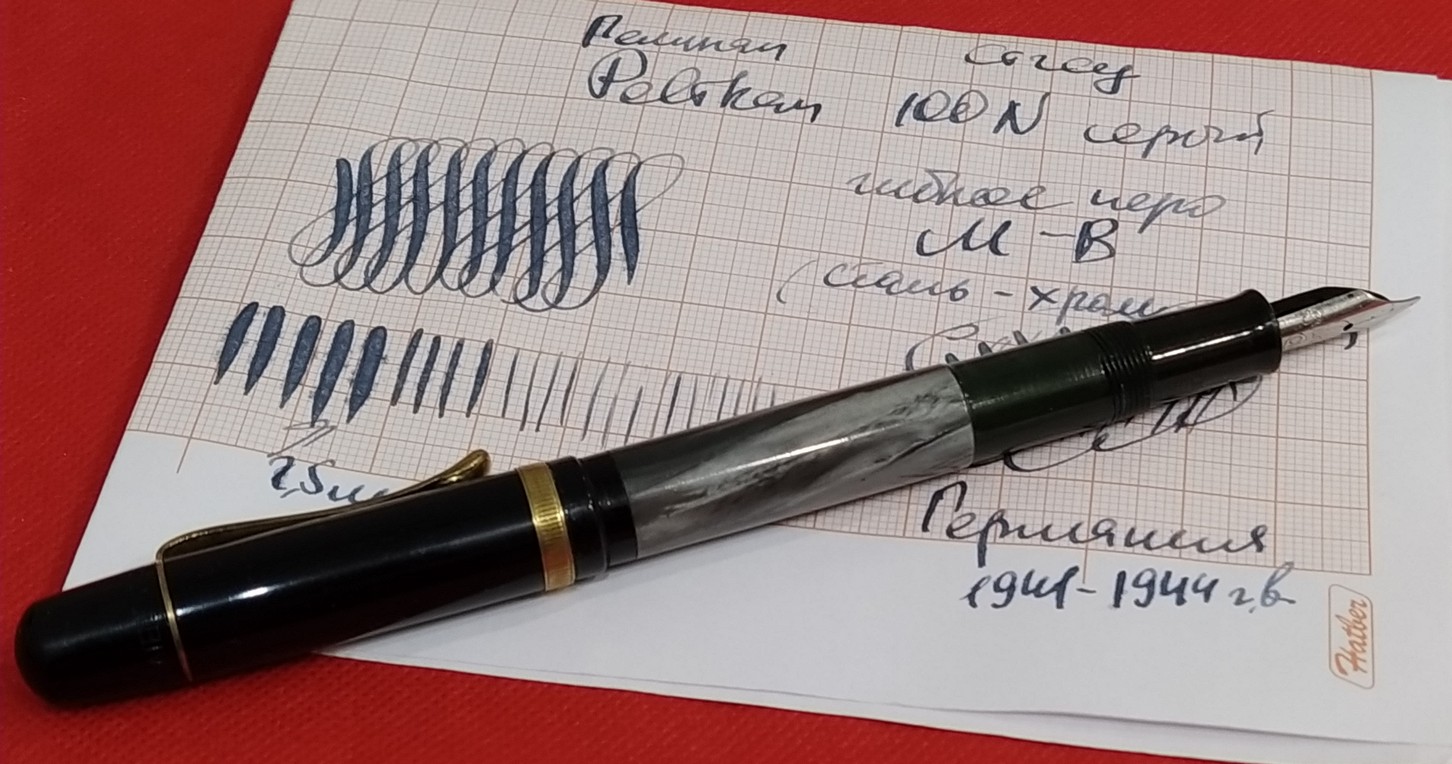 Пеликан
Pelikan 100N серый
гибкое перо
M-B
(сталь-хром
Германия
1941-1944 г.в
Hatber